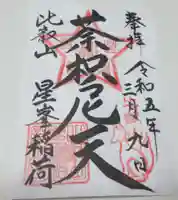 奉拝
令和五年
三月九日
荼枳尼天
比叡山
星峯稲荷